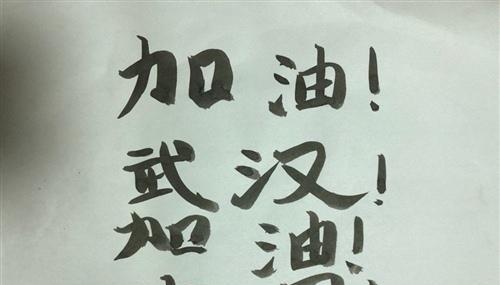 加油！
武汉！
加油！